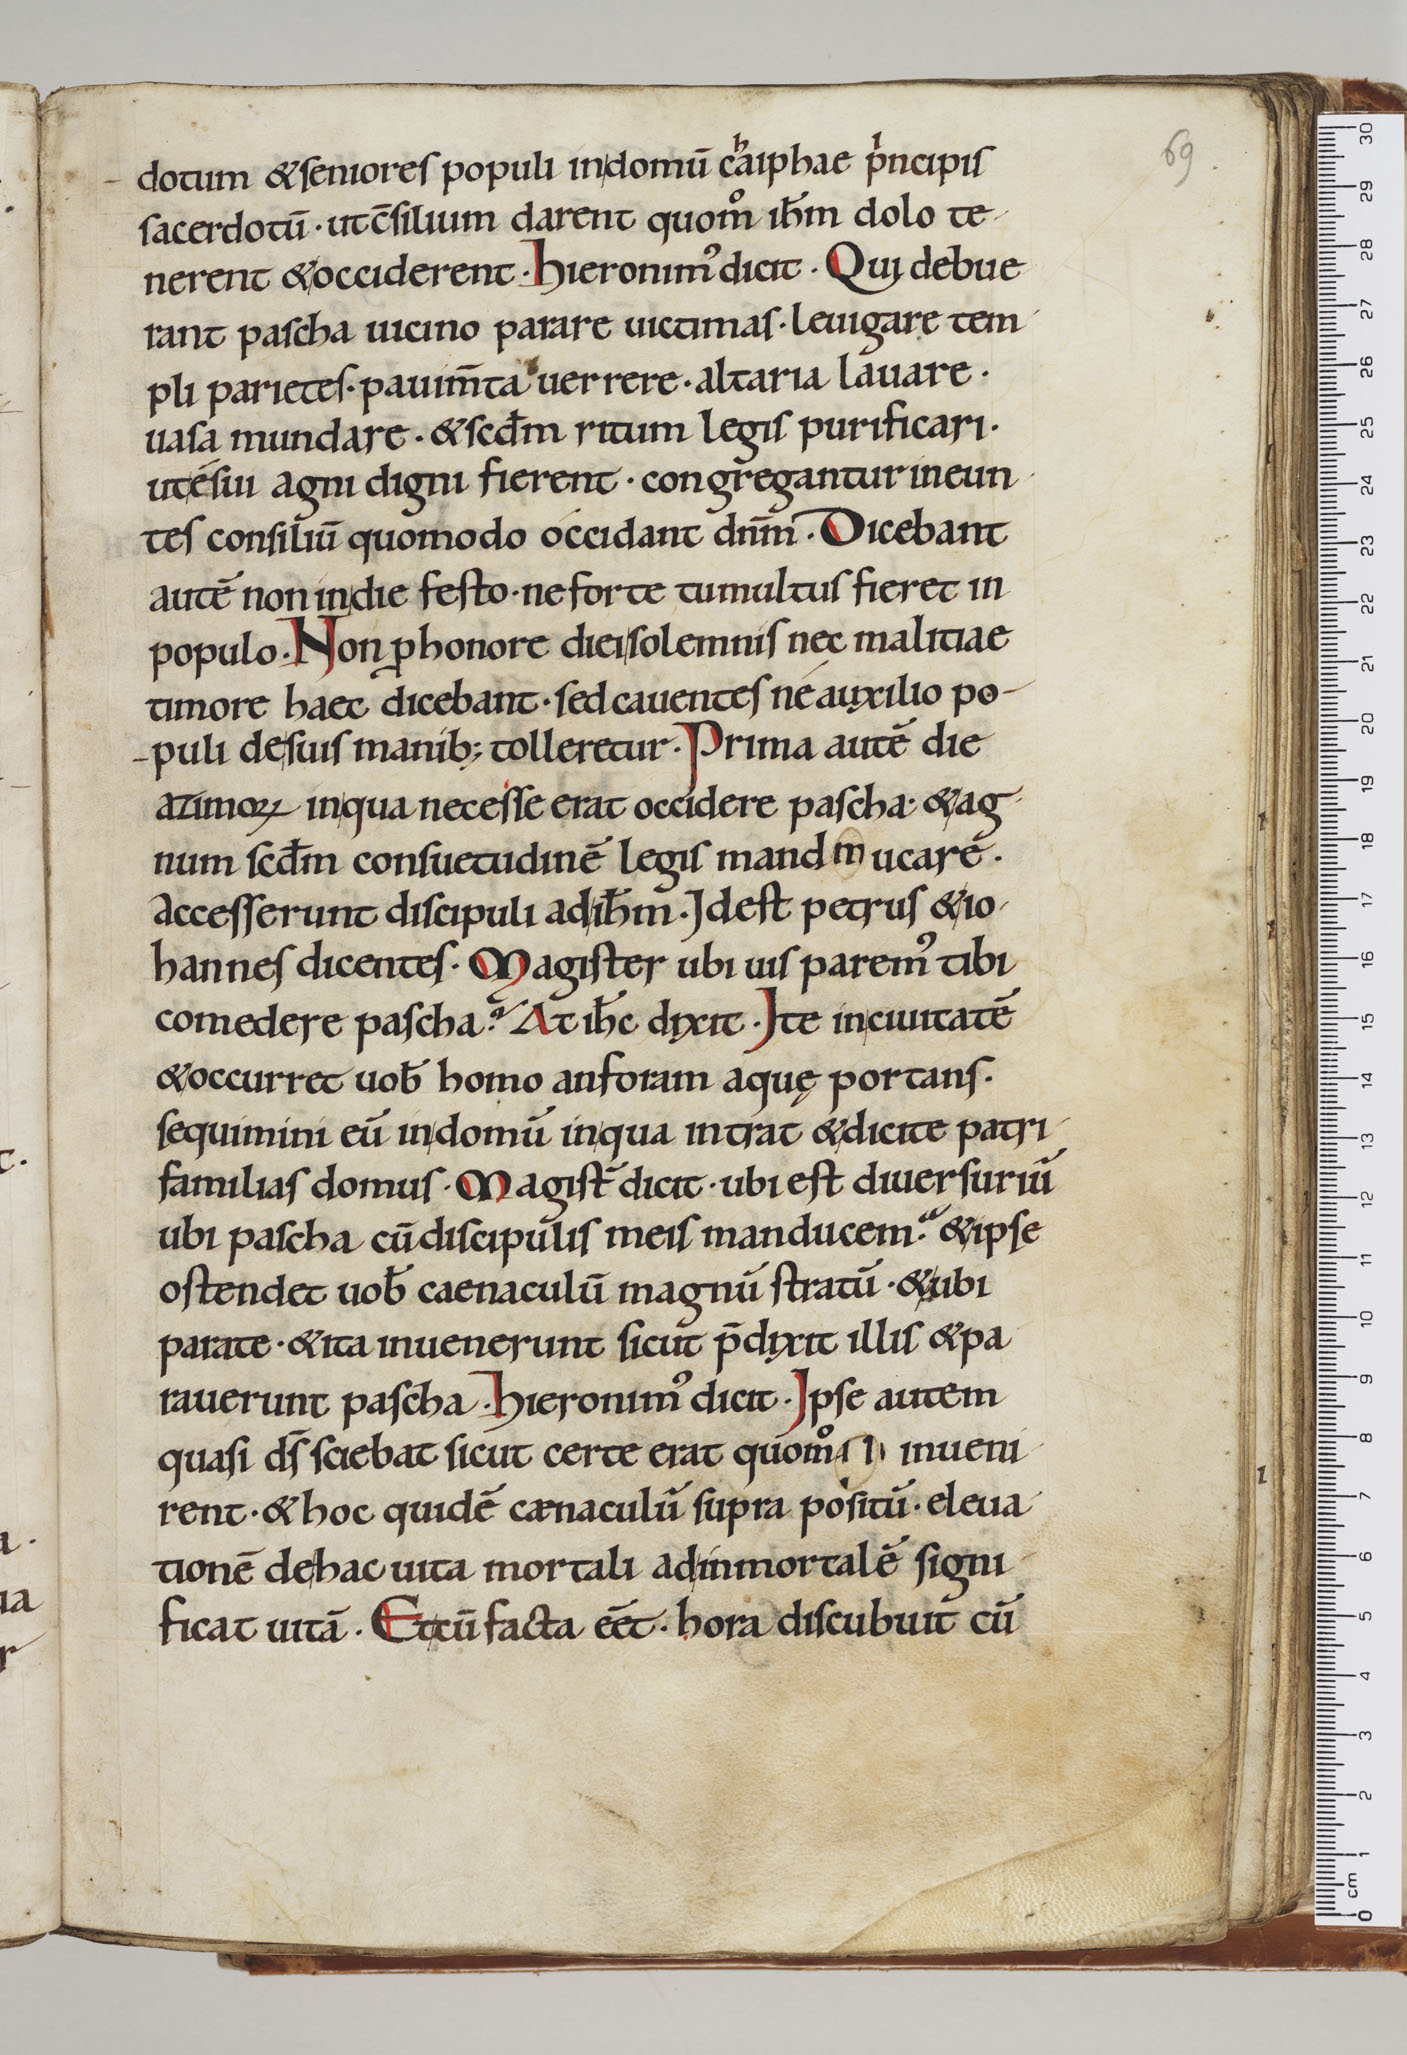 69
dotum & seniores populi in domū cͪaiphae pͥncipis
sacerdotū · ut c̄silium darent quom̊ ihm̄ dolo te-
nerent & occiderent · hieronim᾽ dicit · Qui debue
rant pascha uicino parare uictimas · leuigare tem
pli parietes · pauim̄ta uerrere · altaria lauare ·
uasa mundare · & scdm̄ ritum legis purificari ·
ut esui agni digni fierent · congregantur ineun
tes consiliū quomodo occidant dnm̄ · Dicebant
autē non in die festo · ne forte tumultus fieret in
populo · Non ꝑ honore diei solemnis nec malitiae
timore haec dicebant · sed cauentes ne auxilio po-
puli de suis manib; tolleretur · Prima autē die
azimoꝝ in qua necesse erat occidere pascha · & ag
num scdm̄ consuetudinē legis mand ucare ·
accesserunt discipuli ad ihm̄ · Idest petrus & io
hannes dicentes · Magister ubi uis parem᾽ tibi
comedere pascha? At ihc̄ dixit · Ite in ciuitatē
& occurret uob̄ homo anforam aquę portans ·
sequimini eū in domū in qua intrat & dicite patri
familias domus · Magist̄ dicit · ubi est diuersuriū
ubi pascha cū discipulis meis manducem? & ipse
ostendet uob̄ caenaculū magnū stratū · & ubi
parate · & ita inuenerunt sicut p̄dixit illis & pa
rauerunt pascha · hieronim᾽ dicit · Ipse autem
quasi ds̄ sciebat sicut certe erat quom̊ inueni
rent · & hoc quidē cænaculū supra positū · eleua
tionē de hac uita mortali ad inmortalē signi
ficat uitā · Et cū facta eēt · hora discubuit cū